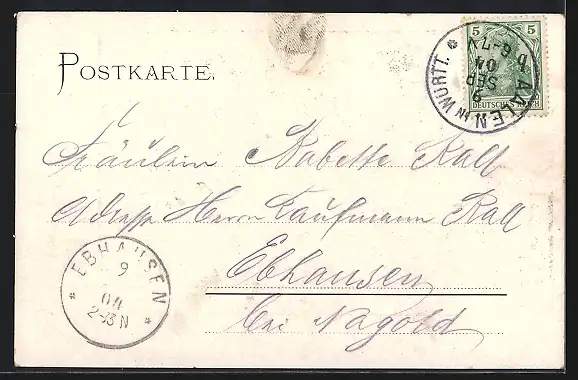 POSTKARTE.
5 5
DEUTSCHES REICH
AALEN IN WÜRTT.
9 SEP 04
6-7 V
Fräulein Babette Kall
Adresse Herrn Kaufmann Kall
Ebhausen
bei Nagold
EBHAUSEN
9
04
2-3 N